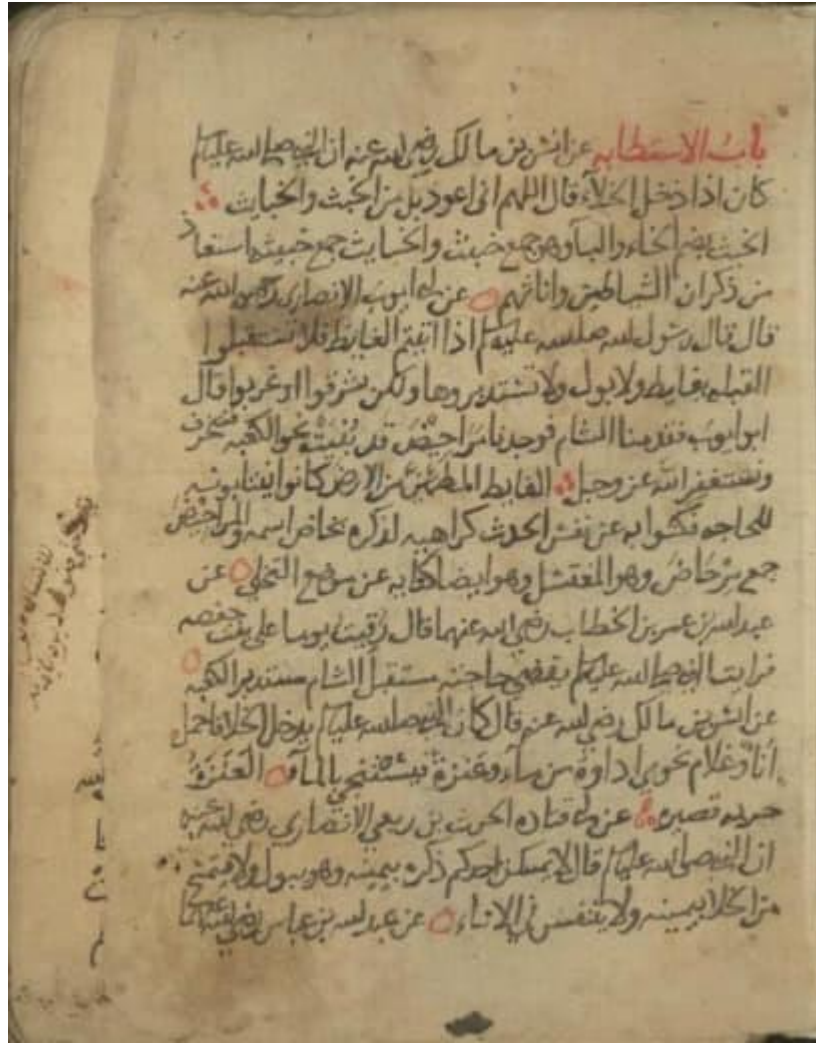 باب الاستطابه عن انس بن مالك رضي الله عنه ان النبي صلى الله عليه وسلم
كان اذا دخل الخلاء قال اللهم انى اعوذ بك من الخبث والخبايث
الخبث بضم الخاء والباء وهو جمع خبيث والخبايث جمع خبيثه استعاذ
من ذكران الشياطين واناثهم عن ابى ايوب الانصارى رضي الله عنه
قال قال رسول الله صلى الله عليه وسلم اذا اتيتم الغايط فلا تستقبلوا
القبله بغايط ولا بول ولا تستدبروها ولكن شرقوا او غربوا قال
ابو ايوب فقدمنا الشام فوجدنا مراحيض قد بنيت نحو الكعبه فننحرف
ونستغفر الله عز وجل الغايط المطمئن من الارض كانوا ينتابونه
للحاجه فكنوا به عن نفس الحدث كراهيه لذكره بخاص اسمه والمراحيض
جمع مرحاض وهو المغتسل وهو ايضا كنايه عن موضع التخلي عن
عبد الله بن عمر بن الخطاب رضي الله عنهما قال رقيت يوما على بيت حفصه
فرايت النبي صلى الله عليه وسلم يقضي حاجته مستقبل الشام مستدبر الكعبه
عن انس بن مالك رضي الله عنه قال كان النبي صلى الله عليه وسلم يدخل الخلا فاحمل
انا وغلام نحوي اداوة من ماء وعنزة فيستنجي بالماء العنزة
حربه قصيره عن ابى قتاده الحرث بن ربعي الانصاري رضي الله عنه
ان النبي صلى الله عليه وسلم قال لا يمسكن احدكم ذكره بيمينه وهو يبول ولا يتمسح
من الخلا بيمينه ولا يتنفس في الاناء عن عبد الله بن عباس رضي الله عنهما